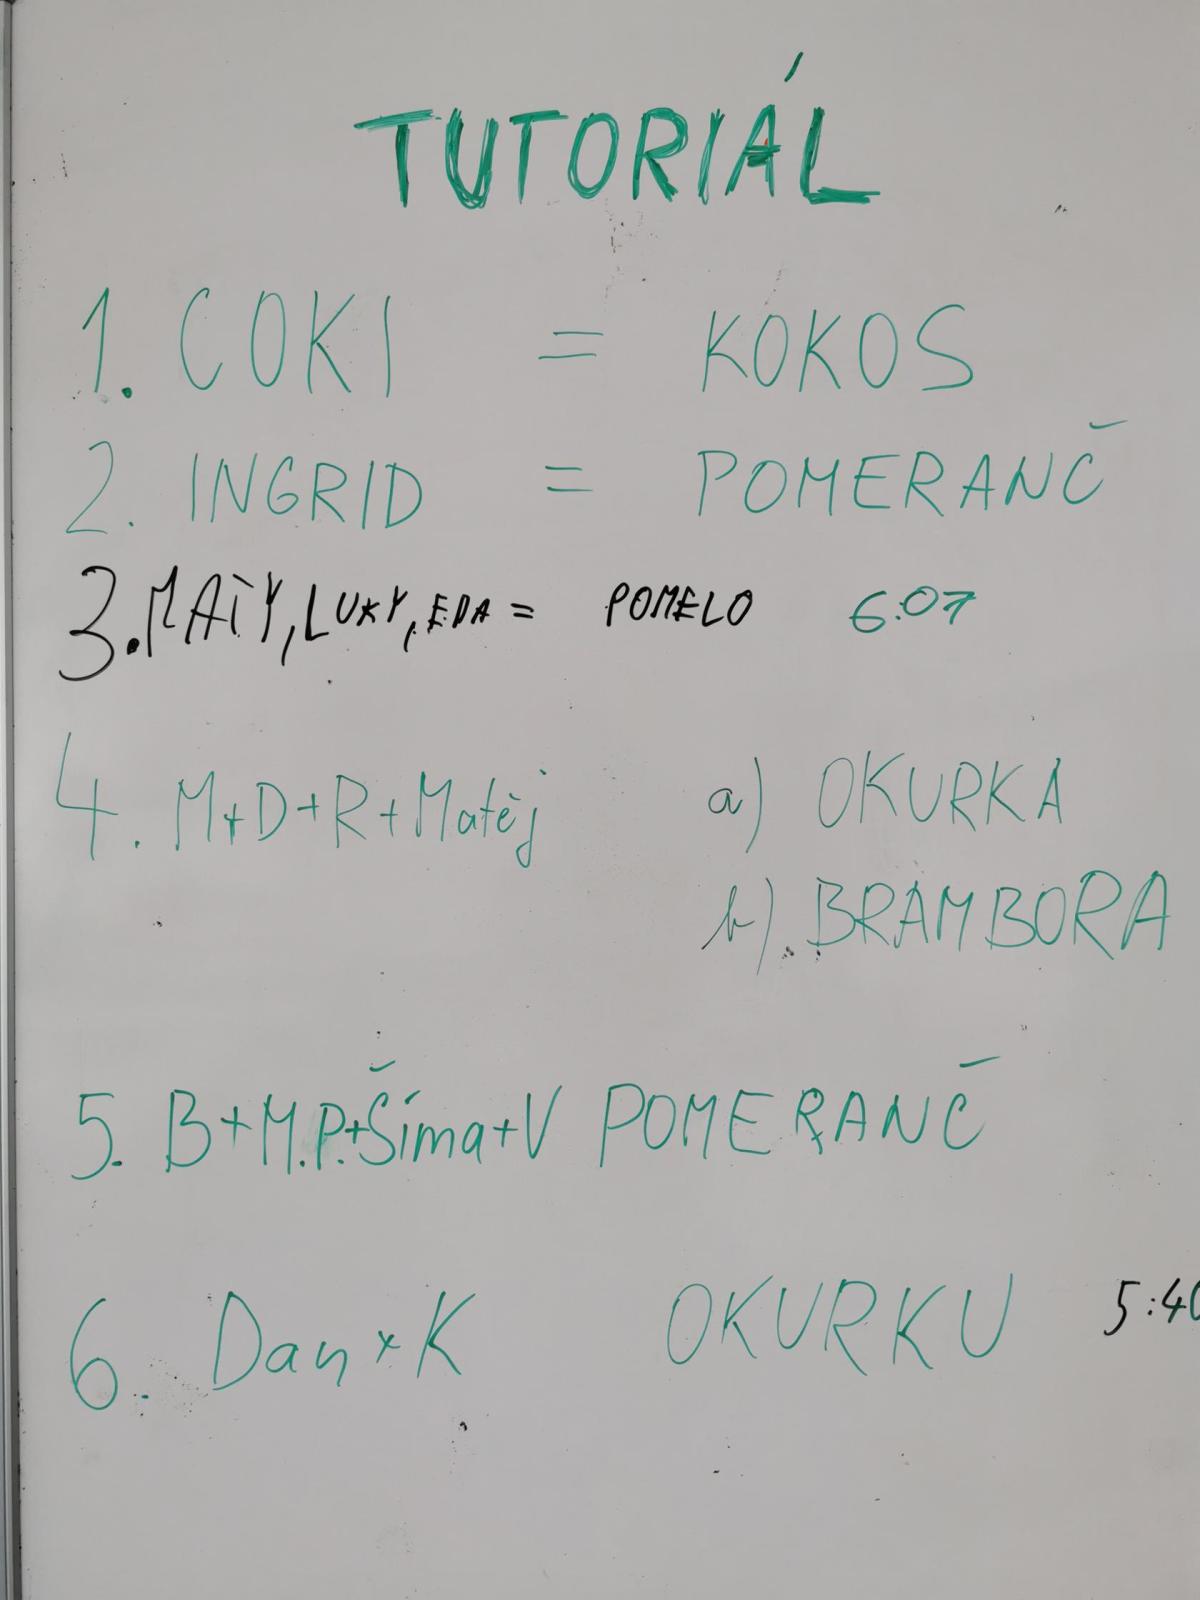 TUTORIÁL
1. COKI = KOKOS
2. INGRID = POMERANČ
3. MAŤY, LUKY, EDA = POMELO 6:07
4. M+D+R+Matěj a) OKURKA
b) BRAMBORA
5. B+M.P.+Šíma+V POMERANČ
6. Dan + K OKURKU 5:40